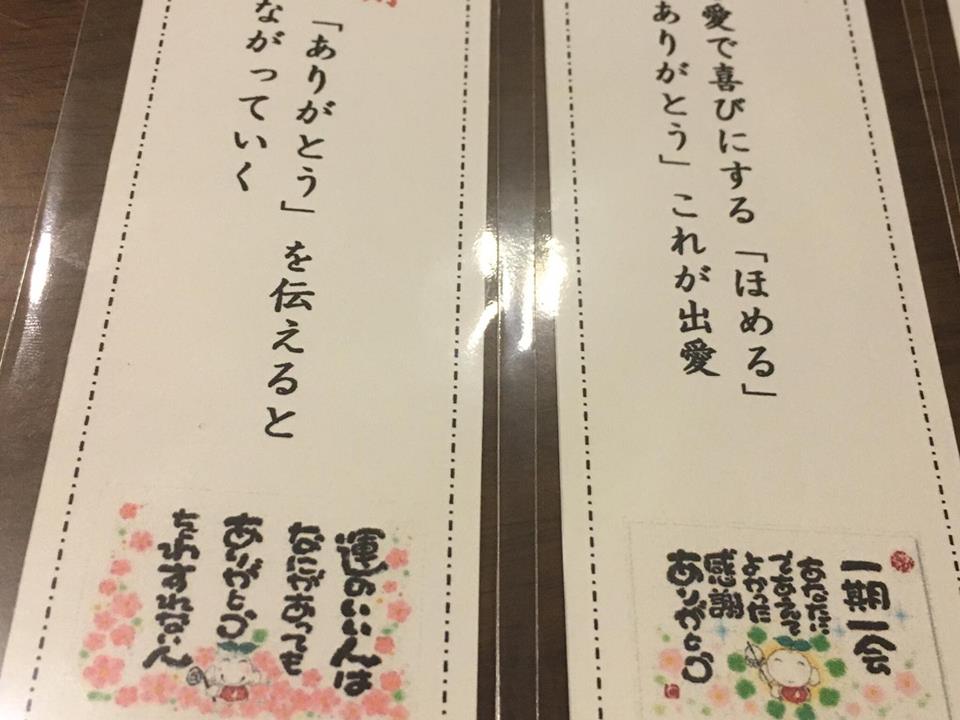 愛で喜びにする「ほめる」
ありがとう」これが出愛
一期一会
あなたに
であえて
よかった
感謝
ありがとう
「ありがとう」を伝えると
ながっていく
運のいい人は
なにがあっても
ありがとう
をわすれない人